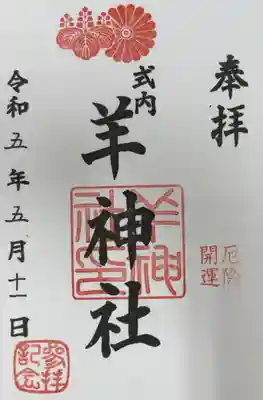 奉拝
厄除
開運
式内
羊神社
羊神社印
令和五年五月十一日
参拝記念